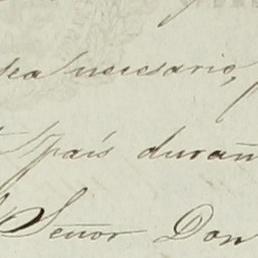 sea necesario,
país duran
Señor Don